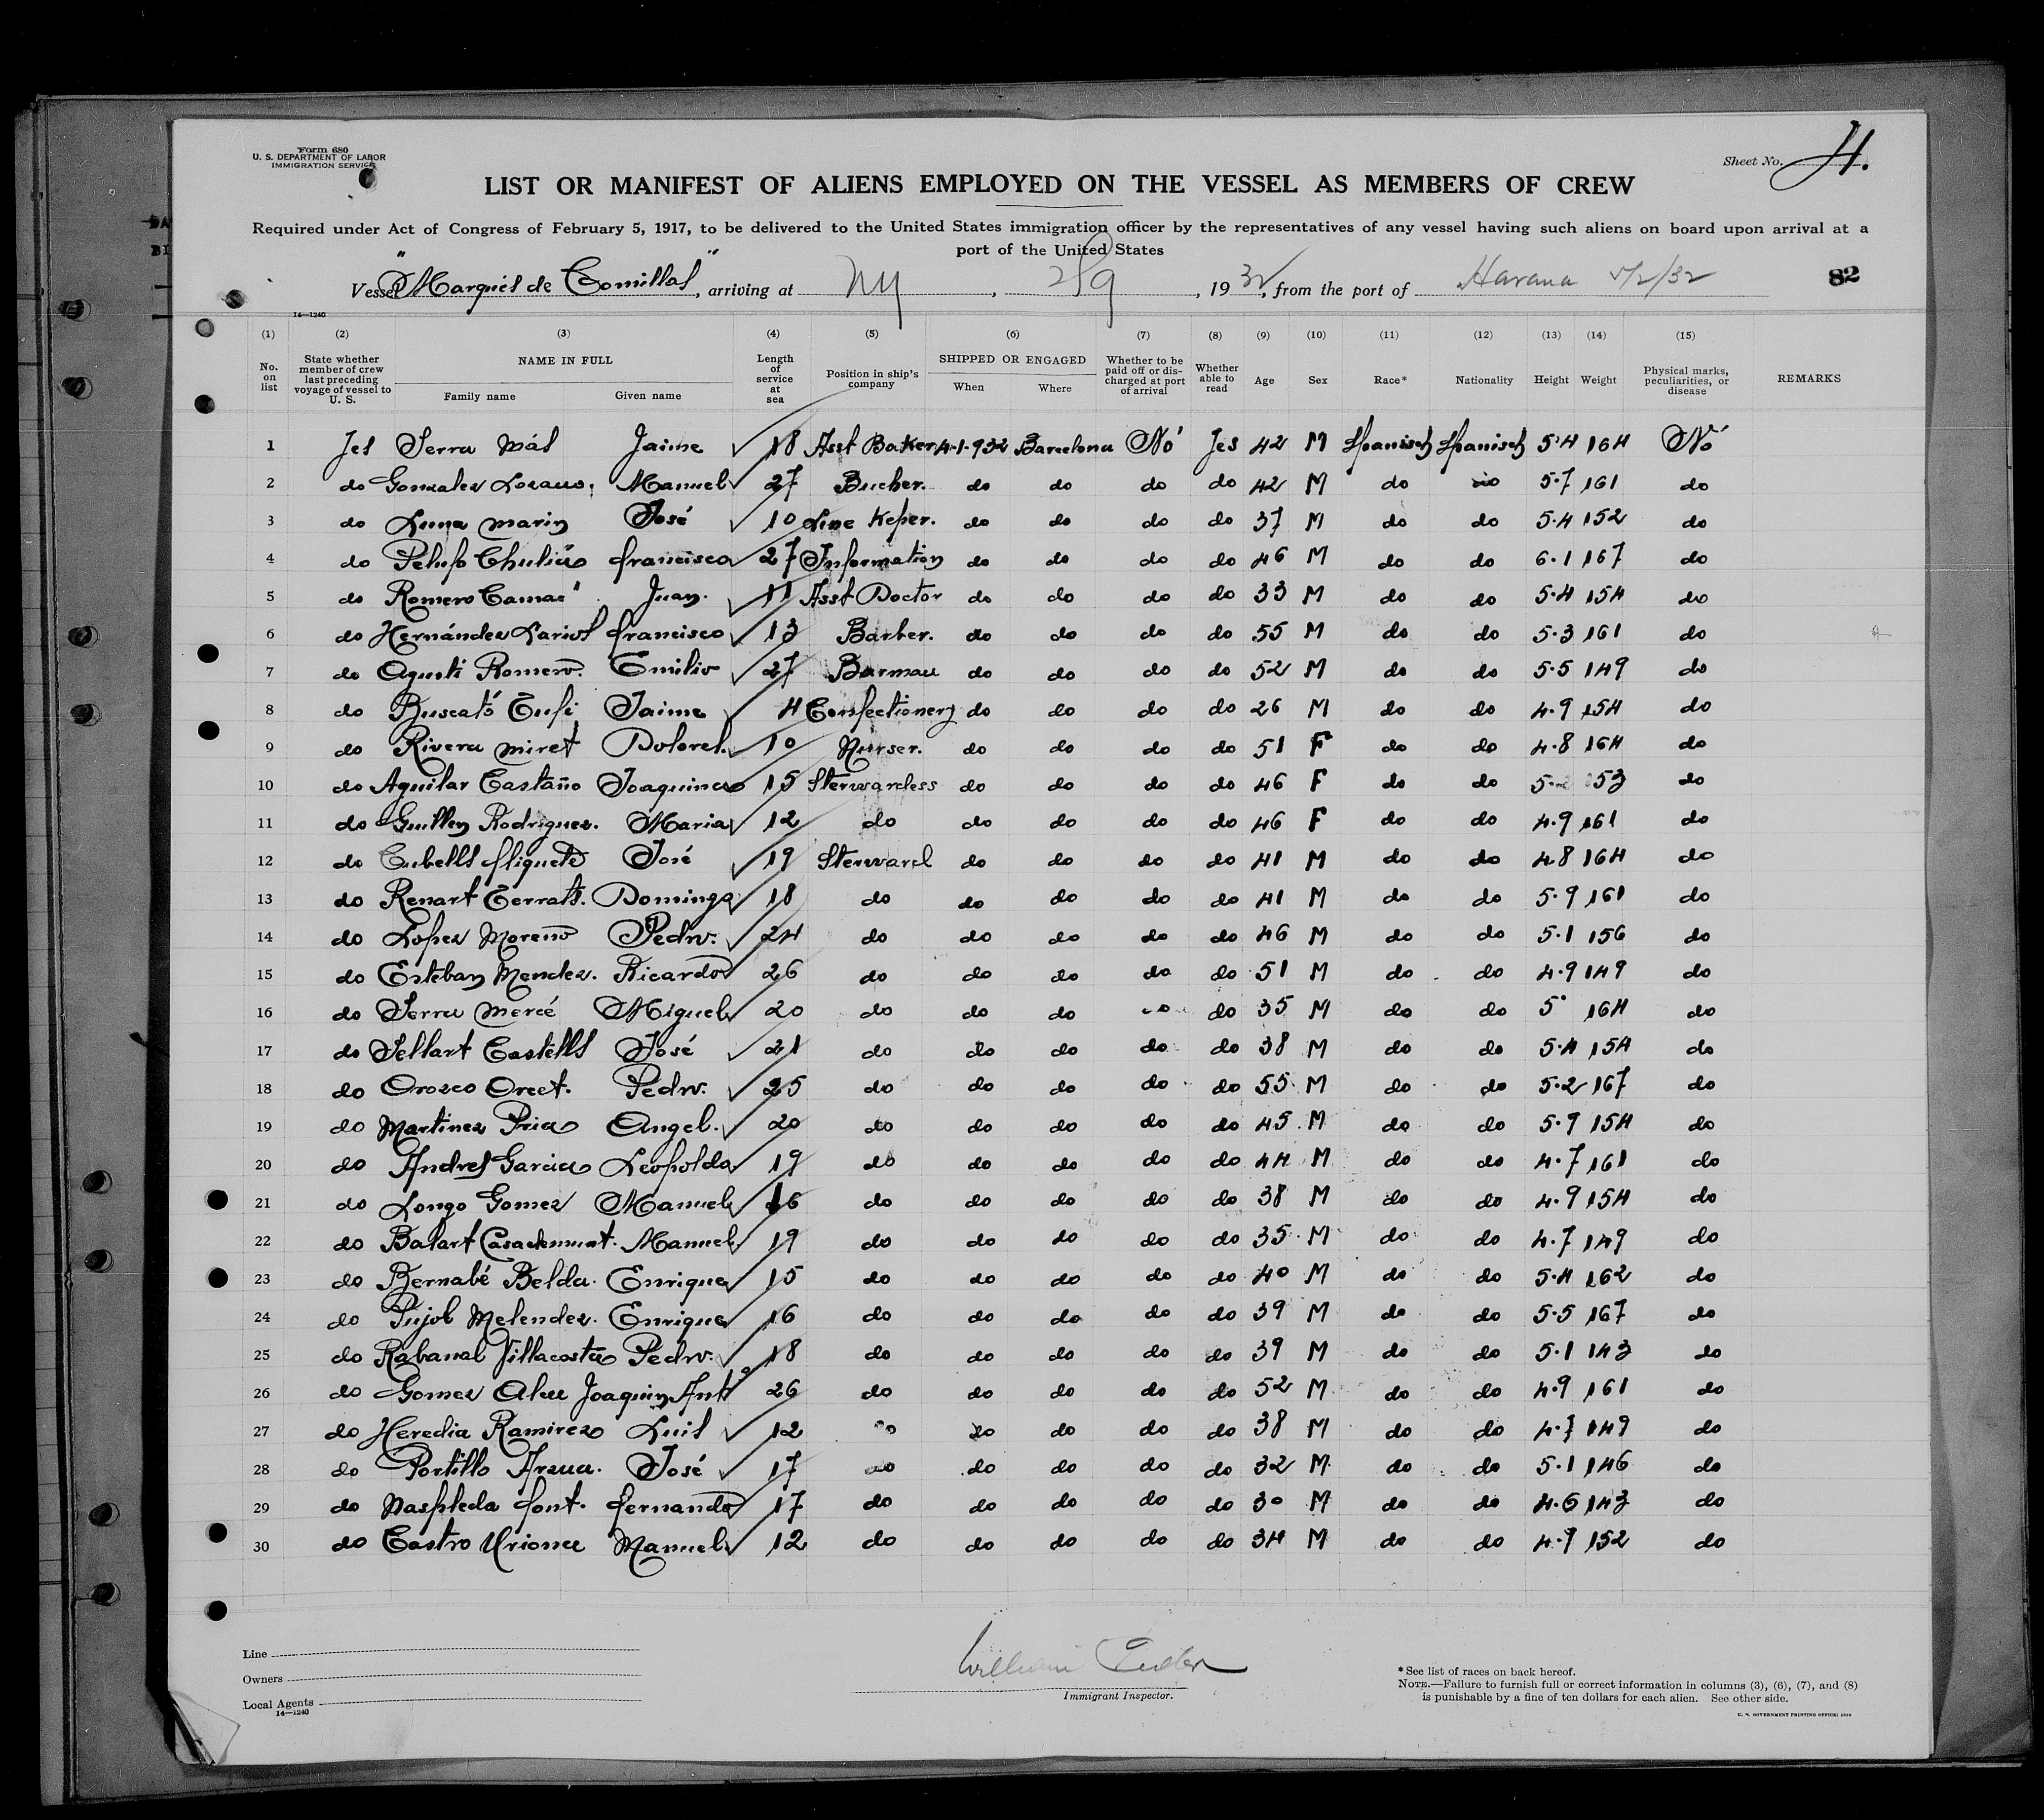 Form 680
U. S. DEPARTMENT OF LABOR
IMMIGRATION SERVICE
Sheet No. 4.
LIST OR MANIFEST OF ALIENS EMPLOYED ON THE VESSEL AS MEMBERS OF CREW
Required under Act of Congress of February 5, 1917, to be delivered to the United States immigration officer by the representatives of any vessel having such aliens on board upon arrival at a
port of the United States
Vessel "Marqués de Comillas", arriving at NY, 2/9, 1932, from the port of Havana 5/2/32
82
14—1240
(1) (2) (3) (4) (5) (6) (7) (8) (9) (10) (11) (12) (13) (14) (15)
No. on list State whether member of crew last preceding voyage of vessel to U. S. NAME IN FULL Family name Given name Length of service at sea Position in ship's company SHIPPED OR ENGAGED When Where Whether to be paid off or discharged at port of arrival Whether able to read Age Sex Race* Nationality Height Weight Physical marks, peculiarities, or disease REMARKS
1 Jes Serra Más Jaime 18 Asst Baker 4-1-932 Barcelona No Jes 42 M Spanisch Spanisch 5·4 164 No
2 do Gonzalez Lozano. Manuel 27 Bucher. do do do do 42 M do do 5·7 161 do
3 do Luna Marin José 10 Line Keper. do do do do 37 M do do 5·4 152 do
4 do Pelufo Chuliá francisco 27 Information do do do do 46 M do do 6·1 167 do
5 do Romero Juan. 11 Asst Doctor do do do do 33 M do do 5·4 154 do
6 do Hernández Lariol francisco 13 Barber. do do do do 55 M do do 5·3 161 do
7 do Agusti Romero. Emilio 27 Barman do do do do 52 M do do 5·5 149 do
8 do Buscató Jaime 4 Confectionery do do do do 26 M do do 4·9 154 do
9 do Rivera Miret Dolores. 10 Nurser. do do do do 51 F do do 4·8 164 do
10 do Aguilar Castaño Joaquina 15 Sterwardess do do do do 46 F do do 5·2 153 do
11 do Guillen Rodriguez. Maria 12 do do do do do 46 F do do 4·9 161 do
12 do Cubells José 19 Sterward do do do do 41 M do do 4·8 164 do
13 do Renart Cerrats. Domingo 18 do do do do do 41 M do do 5·9 161 do
14 do Lopez Moreno Pedro. 24 do do do do do 46 M do do 5·1 156 do
15 do Esteban Mendez. Ricardo 26 do do do do do 51 M do do 4·9 149 do
16 do Serra Mercé Miguel 20 do do do do do 35 M do do 5· 164 do
17 do Sellart Castells José 21 do do do do do 38 M do do 5·4 154 do
18 do Orozco Orect. Pedro. 25 do do do do do 55 M do do 5·2 167 do
19 do Martinez Pria Angel. 20 do do do do do 45 M do do 5·9 154 do
20 do Andres Garcia Leopoldo 19 do do do do do 44 M do do 4·7 161 do
21 do Longo Gomez Manuel 16 do do do do do 38 M do do 4·9 154 do
22 do Balart Manuel 19 do do do do do 35 M do do 4·7 149 do
23 do Bernabé Belda. Enrique 15 do do do do do 40 M do do 5·4 162 do
24 do Pujol Melendez. Enrique 16 do do do do do 39 M do do 5·5 167 do
25 do Rabanal Villacosta Pedro. 18 do do do do do 39 M do do 5·1 143 do
26 do Gomez Joaquin Antº 26 do do do do do 52 M do do 4·9 161 do
27 do Heredia Ramirez Luis 12 do do do do do 38 M do do 4·7 149 do
28 do Portillo Arana. José 17 do do do do do 32 M do do 5·1 146 do
29 do Naspleda font. fernando 17 do do do do do 30 M do do 4·6 143 do
30 do Castro Manuel 12 do do do do do 34 M do do 4·9 152 do
Line
Owners
Local Agents
14—1240
William
Immigrant Inspector.
* See list of races on back hereof.
NOTE.—Failure to furnish full or correct information in columns (3), (6), (7), and (8)
is punishable by a fine of ten dollars for each alien. See other side.
U. S. GOVERNMENT PRINTING OFFICE: